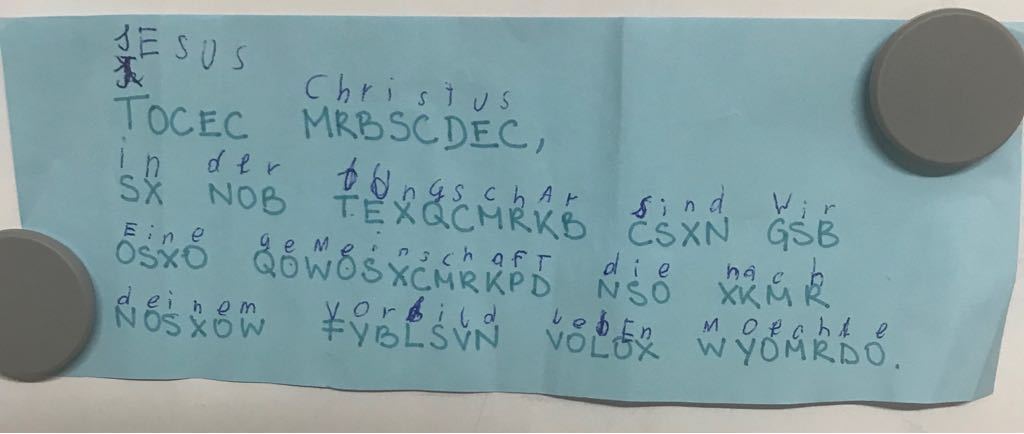 JESUS
Christus
TOCEC MRBSCDEC,
in der JUngschAr sind Wir
SX NOB TEXQCMRKB CSXN GSB
Eine geMeinschafT die nach
OSXO QOWOSXCMRKPD NSO XKMR
deinem Vorbild lebEn Moechte
NOSXOW FYBLSVN VOLOX WYOMRDO.